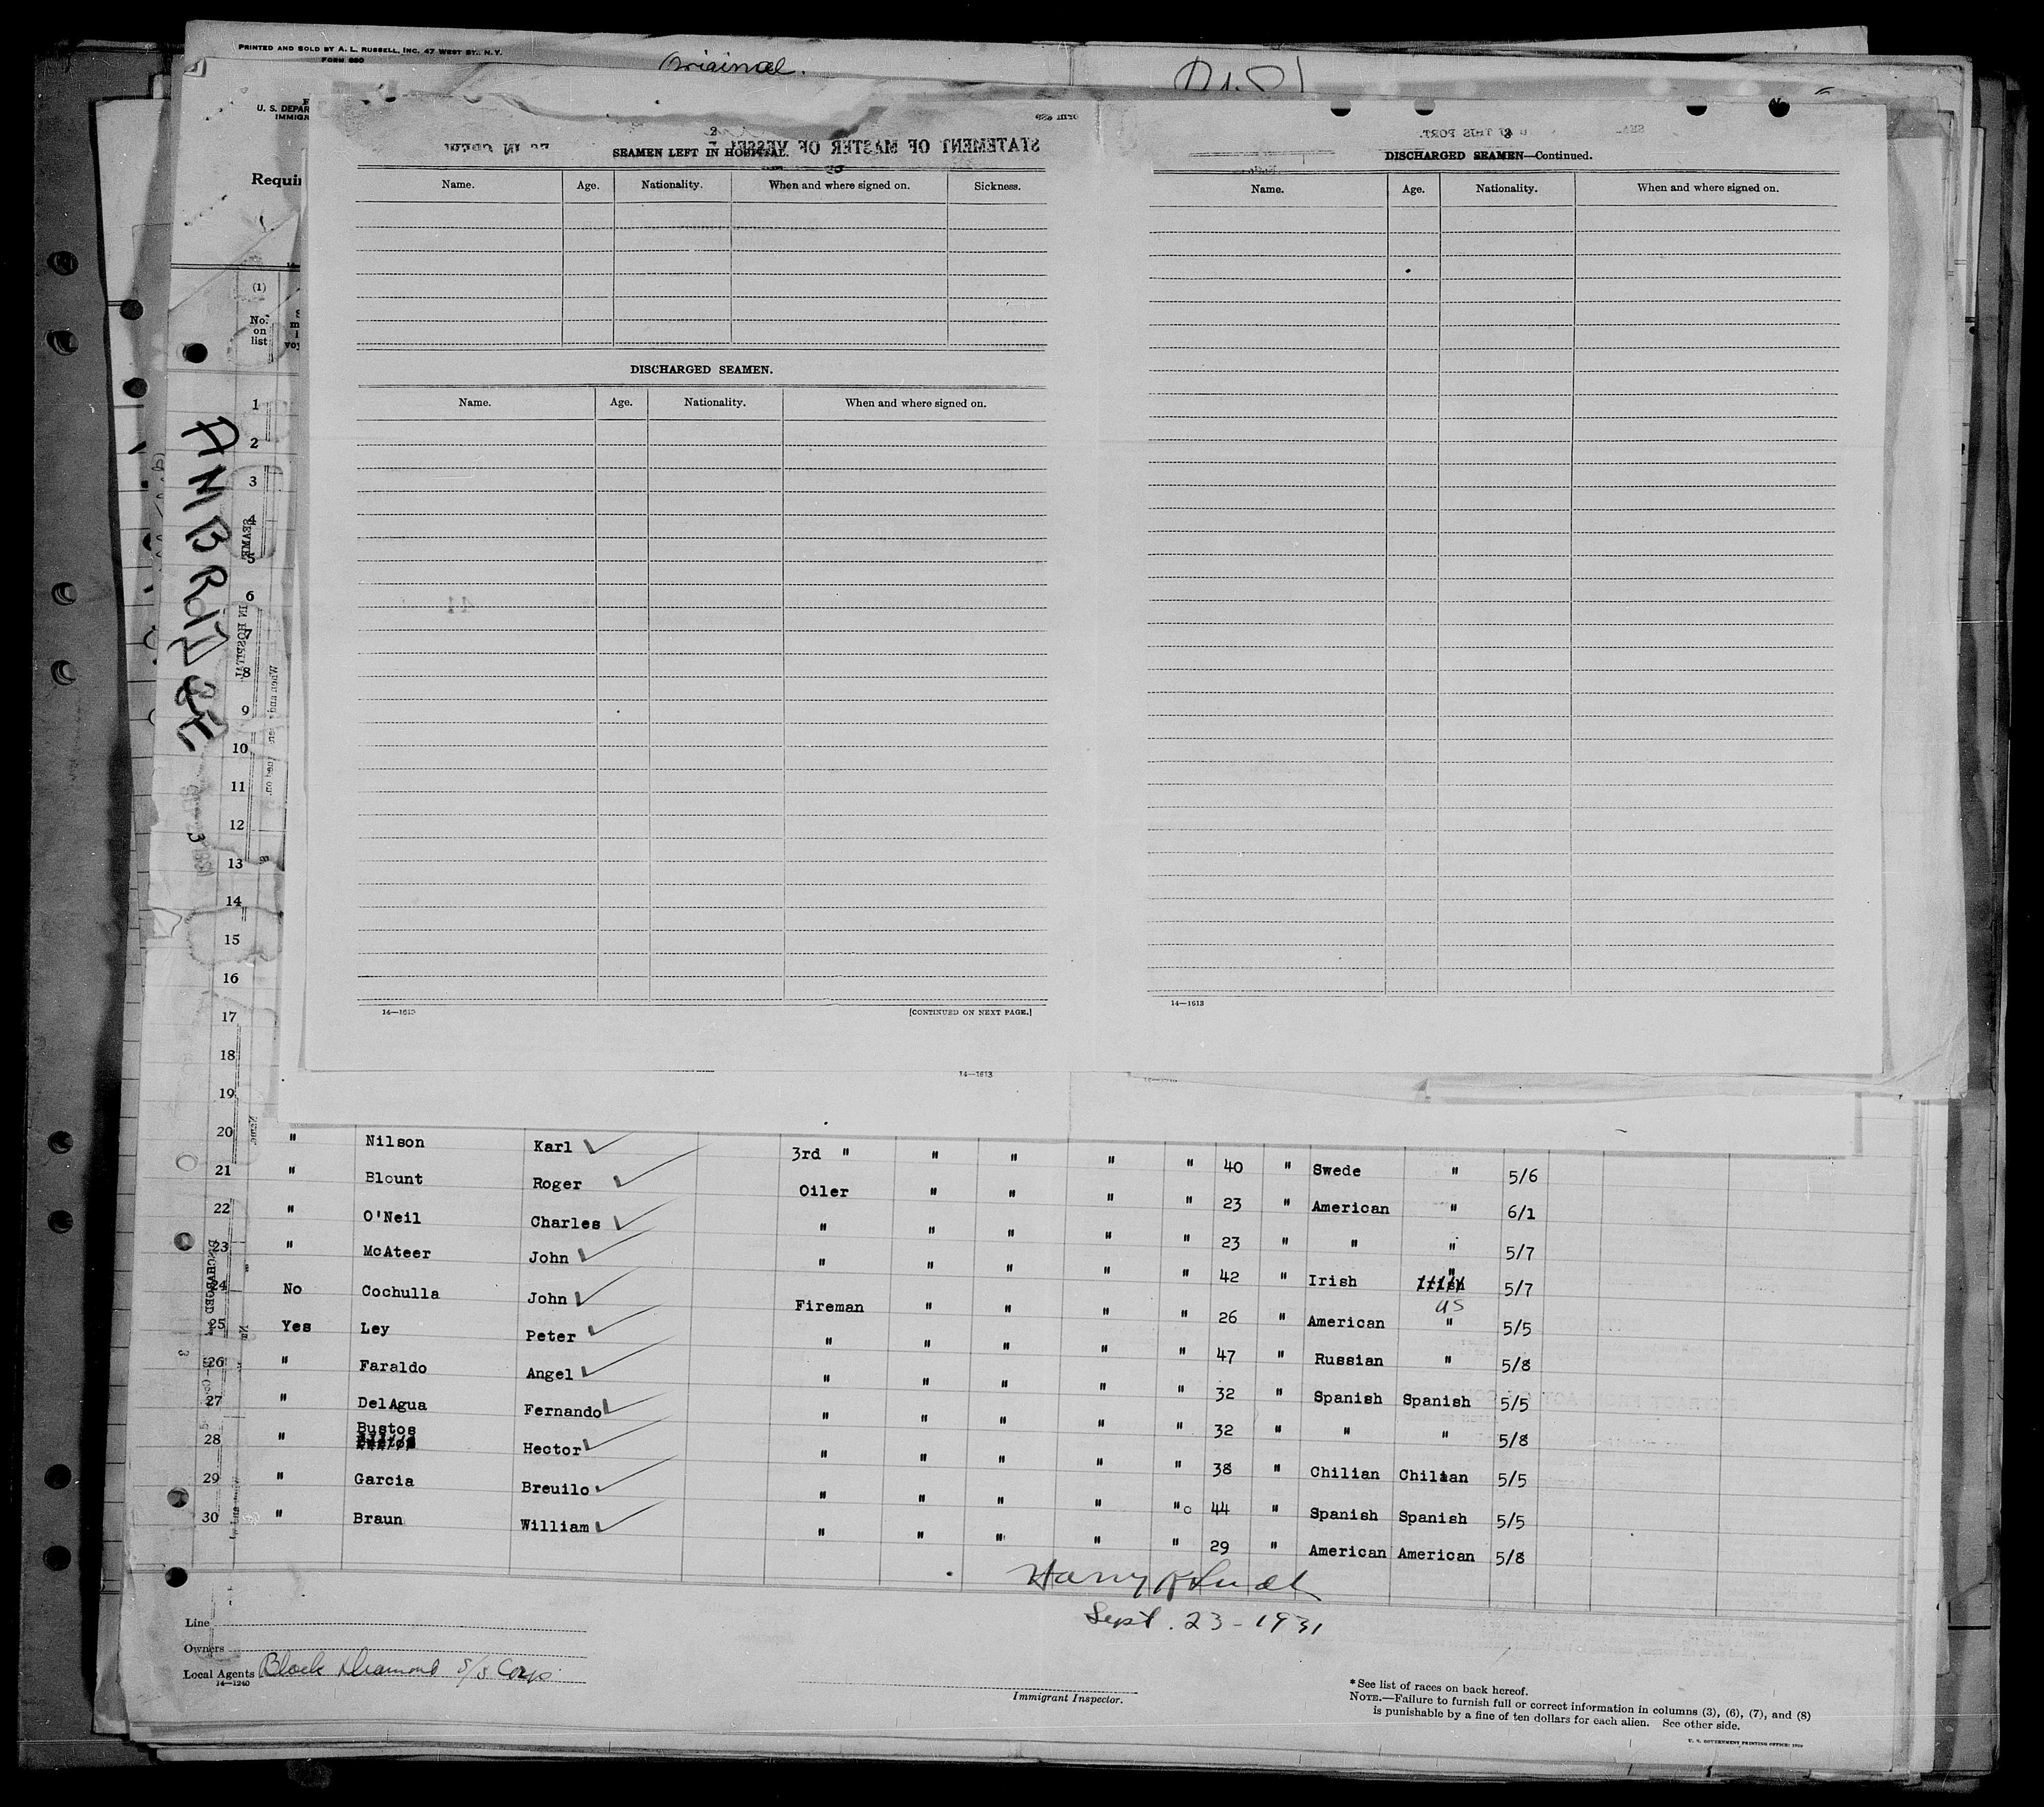 PRINTED AND SOLD BY A. L. RUSSELL, INC. 47 WEST ST., N. Y.
FORM 680
Original.
U. S. DEPAR
IMMIGR
Requir
(1)
No. on list
SEAMEN LEFT IN HOSPITAL.
Name. Age. Nationality. When and where signed on. Sickness.
DISCHARGED SEAMEN.
Name. Age. Nationality. When and where signed on.
14—1613 [CONTINUED ON NEXT PAGE.]
DISCHARGED SEAMEN—Continued.
Name. Age. Nationality. When and where signed on.
14—1613
14—1613
STATEMENT OF MASTER OF VESSEL
1
2
3
4
5
6
7
8
9
10
11
12
13
14
15
16
17
18
19
20 " Nilson Karl 3rd " " " " " 40 " Swede " 5/6
21 " Blount Roger Oiler " " " " 23 " American " 6/1
22 " O'Neil Charles " " " " " 23 " " " 5/7
23 " McAteer John " " " " " 42 " Irish " 5/7
24 No Cochulla John Fireman " " " " 26 " American US " 5/5
25 Yes Ley Peter " " " " " 47 " Russian " 5/8
26 " Faraldo Angel " " " " " 32 " Spanish Spanish 5/5
27 " DelAgua Fernando " " " " " 32 " " " 5/8
28 " Bustos Hector " " " " " 38 " Chilian Chilian 5/5
29 " Garcia Breuilo " " " " " 44 " Spanish Spanish 5/5
30 " Braun William " " " " " 29 " American American 5/8
Sept. 23 - 1931
Line
Owners
Local Agents Black Diamond S/S Corp.
14—1240
Immigrant Inspector.
*See list of races on back hereof.
NOTE.—Failure to furnish full or correct information in columns (3), (6), (7), and (8)
is punishable by a fine of ten dollars for each alien. See other side.